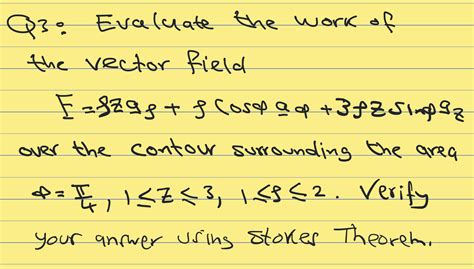 Q3: Evaluate the work of
the vector field
F = ρz a_ρ + ρ cos φ a_φ + 3ρz sin φ a_z
over the contour surrounding the area
φ = π/4, 1 ≤ z ≤ 3, 1 ≤ ρ ≤ 2. Verify
your answer using Stokes Theorem.